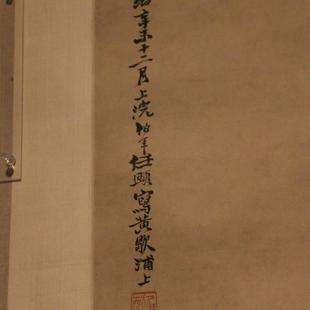 辛未十二月上浣伯年任頤寫黃歇浦上